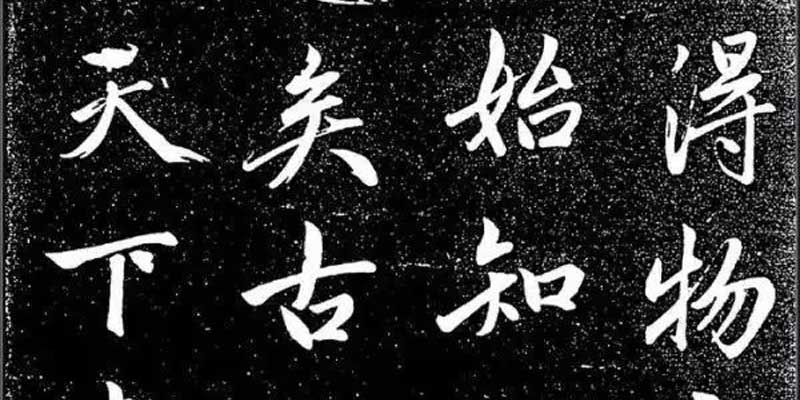 得物
始知
矣古
天下